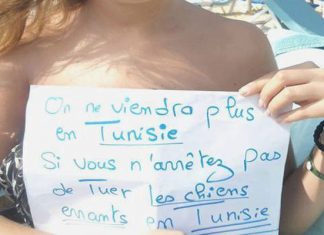 On ne viendra plus
en Tunisie
Si vous n'arrêtez pas
de Tuer les chiens
errants en Tunisie